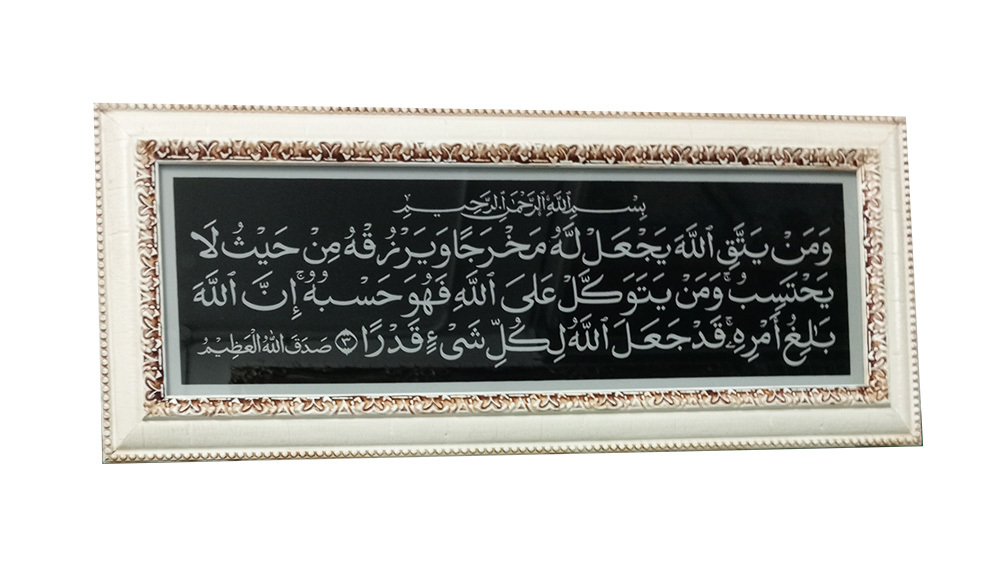 بِسْمِ ٱللَّهِ ٱلرَّحْمَٰنِ ٱلرَّحِيمِ
وَمَنْ يَتَّقِ ٱللَّهَ يَجْعَلْ لَهُ مَخْرَجًا وَيَرْزُقْهُ مِنْ حَيْثُ لَا
يَحْتَسِبُ ۚ وَمَنْ يَتَوَكَّلْ عَلَى ٱللَّهِ فَهُوَ حَسْبُهُ ۚ إِنَّ ٱللَّهَ
بَٰلِغُ أَمْرِهِ ۚ قَدْ جَعَلَ ٱللَّهُ لِكُلِّ شَىْءٍ قَدْرًا ٣ صَدَقَ اللهُ الْعَظِيْمُ